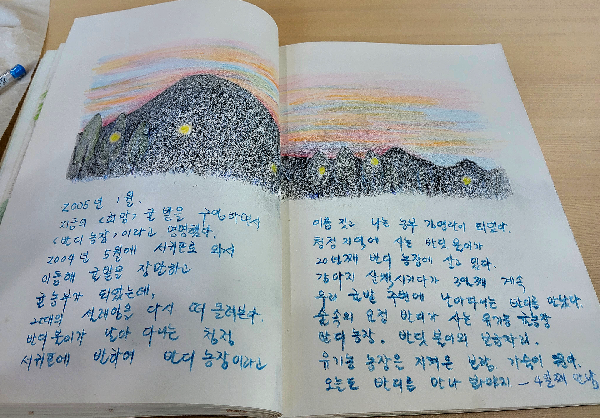 2005년 1월.
지금의 (희망) 귤밭을 구입하면서
<반디농장>이라고 명명했다.
2004년 5월에 서귀포로 와서
이듬해 귤밭을 장만하고
귤농부가 되었는데,
그때의 설레임을 다시 떠올려본다.
반딧불이가 날아 다니는 청정
서귀포에 반하여 반디농장이라고
이름 짓고 나는 농부 되었다.
청정 지역에 사는 반딧불이가
20년째 반디 농장에 살고 있다.
강아지 산책시키다가 3일째 계속
우리 귤밭 주변에 날아다니는 반디를 만났다.
숲속의 요정 반디가 사는 유기농 귤농장
반디 농장. 반딧불이의 보금자리.
유기농 농장을 지켜온 보람, 가슴이 뛴다.
오늘도 반디를 만나 봐야지 - 4일째 만남